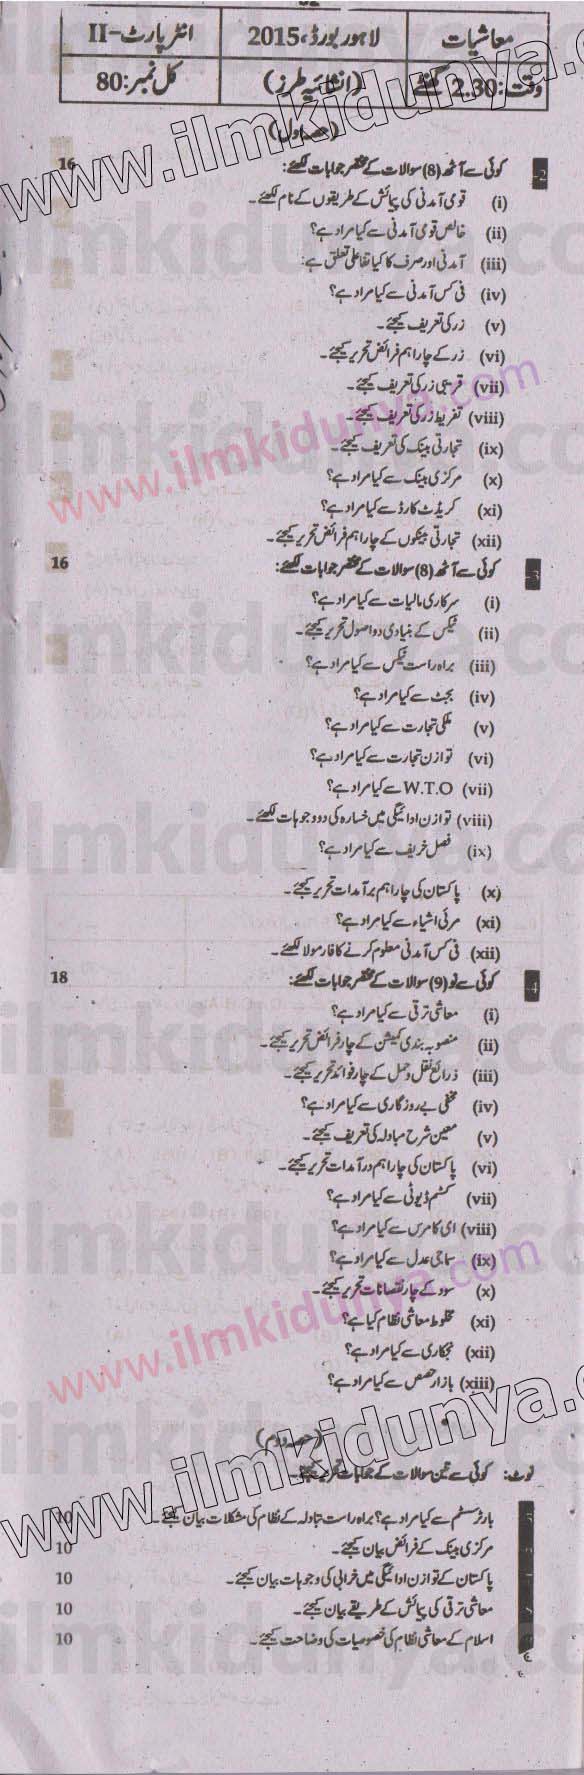 معاشیات لاہور بورڈ، 2015 انٹر پارٹ-II
وقت: 2.30 گھنٹے (انشائیہ طرز) کل نمبر: 80
(حصہ اول)
2- کوئی سے آٹھ (8) سوالات کے مختصر جوابات لکھئے: 16
(i) قومی آمدنی کی پیمائش کے طریقوں کے نام لکھئے۔
(ii) خالص قومی آمدنی سے کیا مراد ہے؟
(iii) آمدنی اور صرف کا کیا تفاعلی تعلق ہے:
(iv) فی کس آمدنی سے کیا مراد ہے؟
(v) زر کی تعریف کیجئے۔
(vi) زر کے چار اہم فرائض تحریر کیجئے۔
(vii) قریبی زر کی تعریف کیجئے۔
(viii) تفریط زر کی تعریف کیجئے۔
(ix) تجارتی بینک کی تعریف کیجئے۔
(x) مرکزی بینک سے کیا مراد ہے؟
(xi) کریڈٹ کارڈ سے کیا مراد ہے؟
(xii) تجارتی بینکوں کے چار اہم فرائض تحریر کیجئے۔
3- کوئی سے آٹھ (8) سوالات کے مختصر جوابات لکھئے: 16
(i) سرکاری مالیات سے کیا مراد ہے؟
(ii) ٹیکس کے بنیادی دو اصول تحریر کیجئے۔
(iii) براہ راست ٹیکس سے کیا مراد ہے؟
(iv) بجٹ سے کیا مراد ہے؟
(v) ملکی تجارت سے کیا مراد ہے؟
(vi) توازن تجارت سے کیا مراد ہے؟
(vii) W.T.O سے کیا مراد ہے؟
(viii) توازن ادائیگی میں خسارہ کی دو وجوہات لکھئے۔
(ix) فصل خریف سے کیا مراد ہے؟
(x) پاکستان کی چار اہم برآمدات تحریر کیجئے۔
(xi) مرئی اشیاء سے کیا مراد ہے؟
(xii) فی کس آمدنی معلوم کرنے کا فارمولا لکھئے۔
4- کوئی سے نو (9) سوالات کے مختصر جوابات لکھئے: 18
(i) معاشی ترقی سے کیا مراد ہے؟
(ii) منصوبہ بندی کمیشن کے چار فرائض تحریر کیجئے۔
(iii) ذرائع نقل و حمل کے چار فوائد تحریر کیجئے۔
(iv) مخفی بے روزگاری سے کیا مراد ہے؟
(v) معین شرح مبادلہ کی تعریف کیجئے۔
(vi) پاکستان کی چار اہم درآمدات تحریر کیجئے۔
(vii) کسٹم ڈیوٹی سے کیا مراد ہے؟
(viii) ای کامرس سے کیا مراد ہے؟
(ix) سماجی عدل سے کیا مراد ہے؟
(x) سود کے چار نقصانات تحریر کیجئے۔
(xi) مخلوط معاشی نظام کیا ہے؟
(xii) نجکاری سے کیا مراد ہے؟
(xiii) بازار حصص سے کیا مراد ہے؟
(حصہ دوم)
نوٹ: کوئی سے تین سوالات کے جوابات تحریر کیجئے۔
بارٹر سسٹم سے کیا مراد ہے؟ براہ راست تبادلہ کے نظام کی مشکلات بیان کیجئے۔ 10
مرکزی بینک کے فرائض بیان کیجئے۔ 10
پاکستان کے توازن ادائیگی میں خرابی کی وجوہات بیان کیجئے۔ 10
معاشی ترقی کی پیمائش کے طریقے بیان کیجئے۔ 10
اسلام کے معاشی نظام کی خصوصیات کی وضاحت کیجئے۔ 10
www.ilmkidunya.com
www.ilmkidunya.com
www.ilmkidunya.com
www.ilmkidunya.com